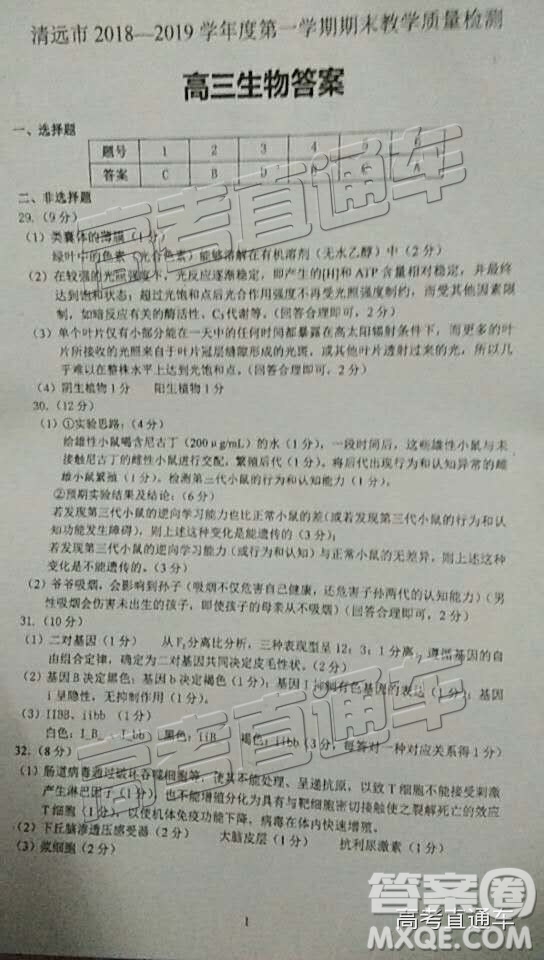 清远市 2018—2019 学年度第一学期期末教学质量检测
高三生物答案
一、选择题
题号 1 2 3 4 5 6
答案 C B D A
二、非选择题
29.（9 分）
（1）类囊体的薄膜（1 分）
绿叶中的色素（光合色素）能够溶解在有机溶剂（无水乙醇）中（2 分）
（2）在较强的光照强度下，光反应逐渐稳定，即产生的[H]和 ATP 含量相对稳定，并最终
达到饱和状态；超过光饱和点后光合作用强度不再受光照强度制约，而受其他因素限
制，如暗反应有关的酶活性、C₅代谢等。（回答合理即可，2 分）
（3）单个叶片仅有小部分能在一天中的任何时间都暴露在高太阳辐射条件下，而更多的叶
片所接收的光照来自于叶片冠层缝隙形成的光斑，或其他叶片透射过来的光，所以几
乎难以在整株水平上达到光饱和点。（回答合理即可，2 分）
（4）阴生植物 1 分 阳生植物 1 分
30.（12 分）
（1）①实验思路：（4 分）
给雄性小鼠喝含尼古丁（200 μg/mL）的水（1 分），一段时间后，这些雄性小鼠与未
接触尼古丁的雌性小鼠进行交配，繁殖后代（1 分）。将后代出现行为和认知异常的雌
雄小鼠繁殖（1 分），检测第三代小鼠的行为和认知能力（1 分）。
②预期实验结果及结论：（6 分）
若发现第三代小鼠的逆向学习能力也比正常小鼠的差（或若发现第三代小鼠的行为和认
知功能发生障碍），则上述这种变化是能遗传的（3 分）；
若发现第三代小鼠的逆向学习能力（或行为和认知）与正常小鼠的无差异，则上述这种
变化是不能遗传的。（3 分）
（2）爷爷吸烟，会影响到孙子（吸烟不仅危害自己健康，还危害子孙两代的认知能力）（男
性吸烟会伤害未出生的孩子，即使孩子的母亲从不吸烟）（回答合理即可，2 分）
31.（10 分）
（1）二对基因（1 分） 从 F₂分离比分析，三种表现型呈 12：3：1 分离，遵循基因的自
由组合定律，确定为二对基因共同决定皮毛性状。（2 分）
（2）基因 B 决定黑色；基因 b 决定褐色（1 分）；基因 I 抑制有色基因的表达（1 分）；基因
i 呈隐性，无抑制作用（1 分）。
（3）IIBB、iibb （1 分）
白色：I_B_、I_bb 黑色：iiB_ 褐色：iibb（3 分，每答对一种对应关系得 1 分）
32.（8 分）
（1）肠道病毒通过破坏吞噬细胞等，使其不能处理、呈递抗原，以致 T 细胞不能被激活
产生淋巴因子（1 分），也不能增殖分化为具有与靶细胞密切接触使之裂解死亡的效应
T 细胞（1 分），以使机体免疫功能下降，病毒在体内快速增殖。
（2）下丘脑渗透压感受器（2 分） 大脑皮层（1 分） 抗利尿激素（1 分）
（3）浆细胞（2 分）
1
高考直通车
高考直通车
高考直通车
答案圈
高考直通车
MXQE.COM